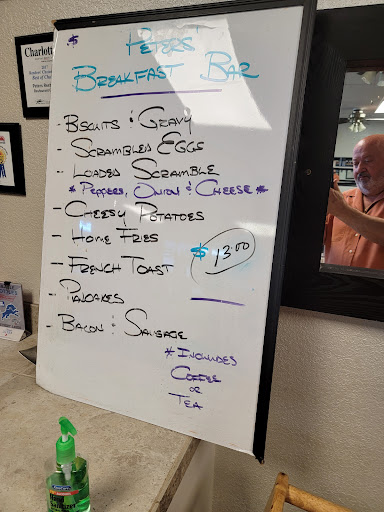 Charlotte
$
Peters'
Breakfast Bar
- Biscuits & Gravy
- Scrambled Eggs
- Loaded Scramble
* Peppers, Onion & Cheese *
- Cheesy Potatoes
- Home Fries
$13.00
- French Toast
- Pancakes
- Bacon & Sausage
* Includes
Coffee
or
Tea